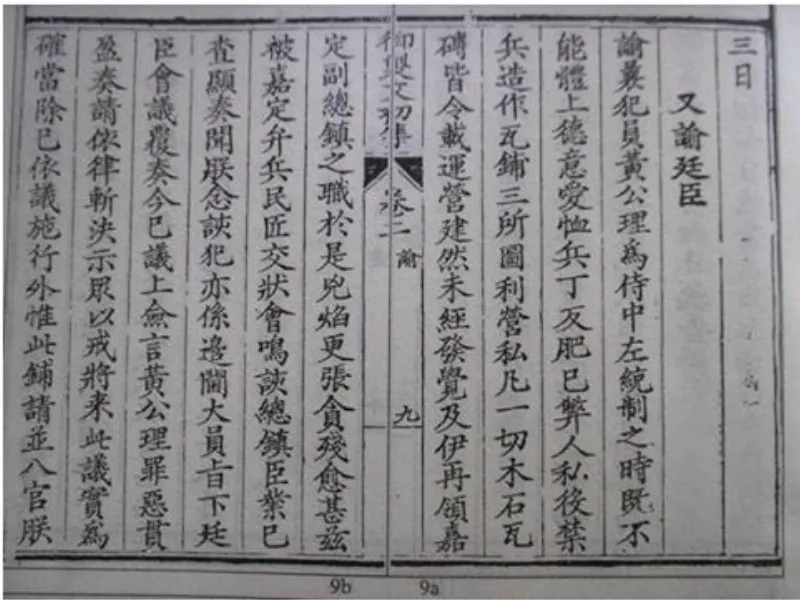 三日
又諭廷臣
諭曩犯員黃公理為侍中左統制之時旣不
能體上德意愛恤兵丁反肥己弊人私役禁
兵造作瓦鋪三所圖利營私凡一切木石瓦
磚皆令載運營建然未經發覺及伊再領嘉
御製文初集 卷二 諭 九
定副總鎮之職於是兇焰更張貪殘愈甚茲
被嘉定弁兵民匠交狀會鳴該總鎮臣業已
查顯奏聞朕念該犯亦係邊閫大員旨下廷
臣會議覆奏今已議上僉言黃公理罪惡貫
盈奏請依律斬決示眾以戒將来此議實為
確當除已依議施行外惟此鋪請並入官朕
9b 9a